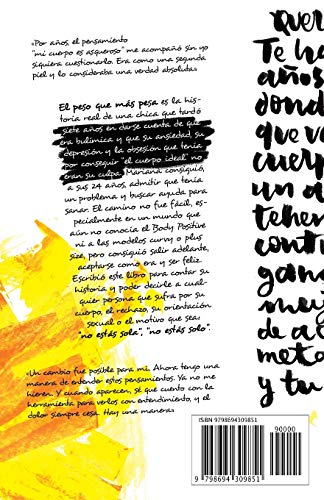 «Por años, el pensamiento
"mi cuerpo es asqueroso" me acompañó sin yo
siquiera cuestionarlo. Era como una segunda
piel y lo consideraba una verdad absoluta»
El peso que más pesa es la his-
toria real de una chica que tardó
siete años en darse cuenta de que
era bulímica y que su ansiedad, su
depresión y la obsesión que tenía
por conseguir "el cuerpo ideal" no
eran su culpa. Mariana consiguió,
a sus 24 años, admitir que tenía
un problema y buscar ayuda para
sanar. El camino no fue fácil, es-
pecialmente en un mundo que
aún no conocía el Body Positive
ni a las modelos curvy o plus
size, pero consiguió salir adelante,
aceptarse como era y ser feliz.
Escribió este libro para contar su
historia y poder decirle a cual-
quier persona que sufra por su
cuerpo, el rechazo, su orientación
sexual o el motivo que sea:
"no estás sola", "no estás solo".
«Un cambio fue posible para mí. Ahora tengo una
manera de entender estos pensamientos. Ya no me
hieren. Y cuando aparecen, sé que cuento con la
herramienta para verlos con entendimiento, y el
dolor siempre cesa. Hay una manera»
Quer
Te ha
años
dond
que ve
cuerp
un d
tener
cont
gana
muj
de a
meta
y tu
ISBN 9798694309851
90000
9 798694 309851